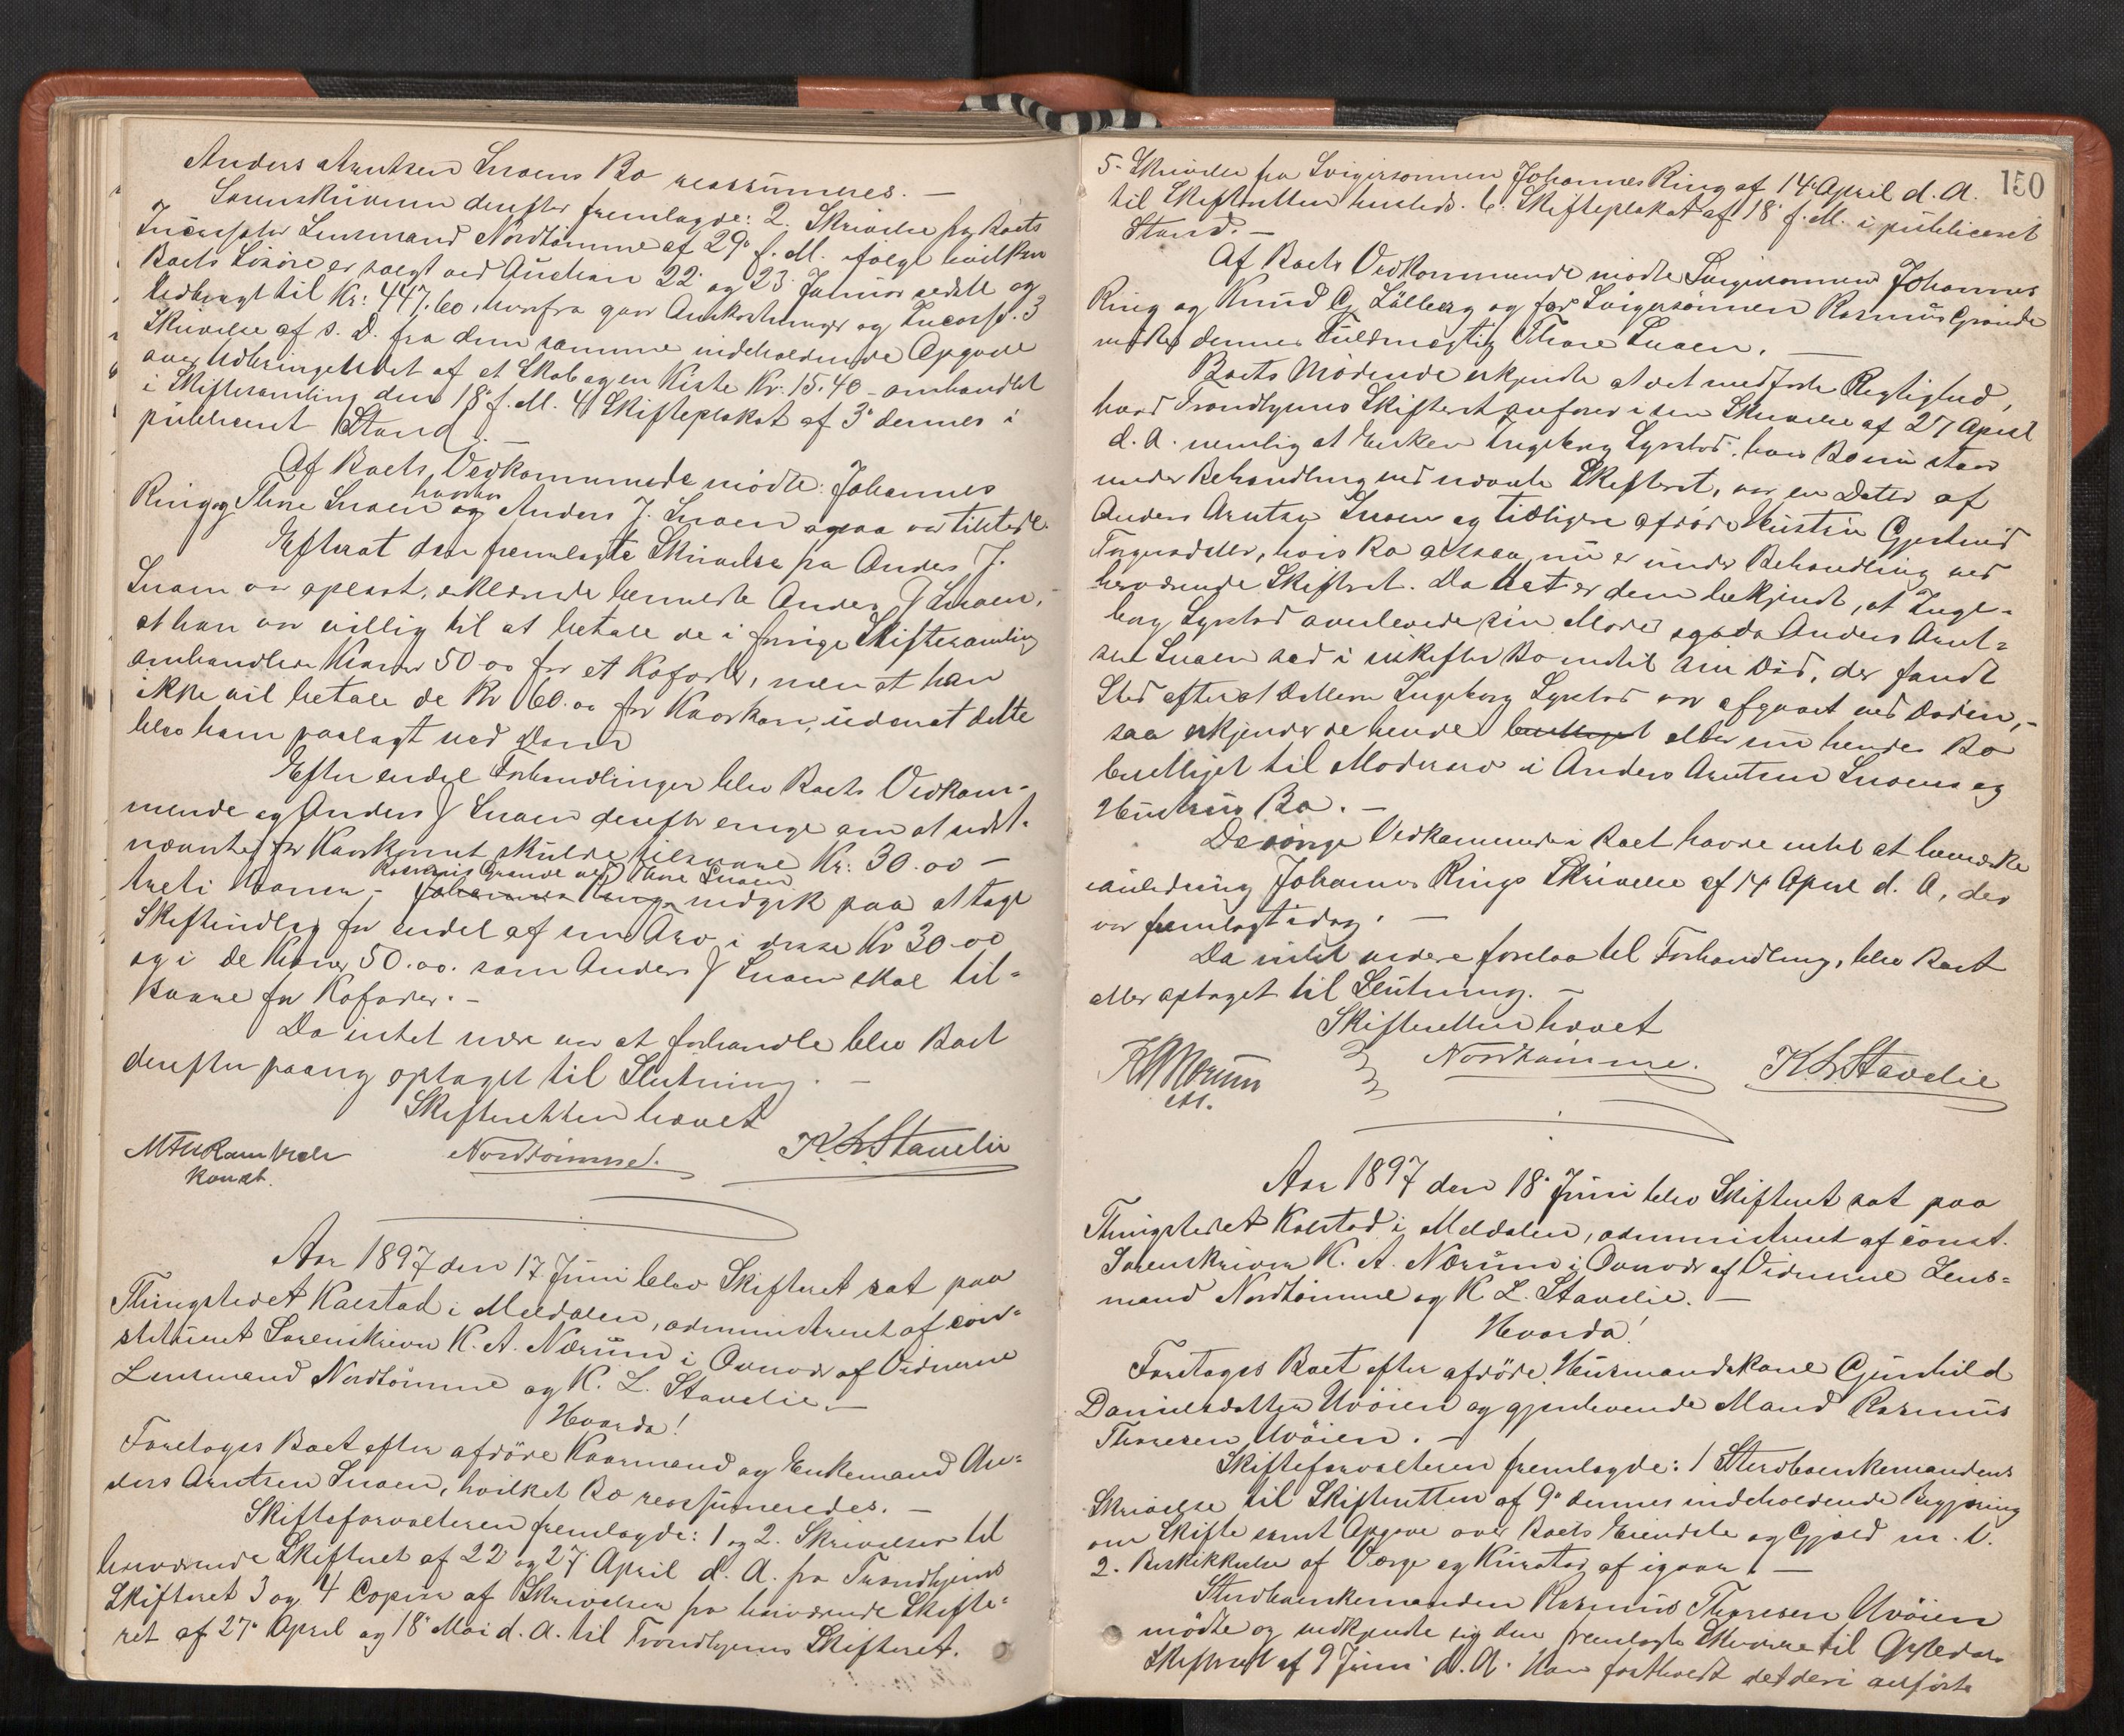 Anders Arntsen Snoens Bo reassumeres. —
Sorenskriveren derefter fremlagde: 2. Skrivelse fra Boets
Incassator Lensmand Nordtømme af 29de f. M. ifølge hvilken
Boets Løsøre er solgt ved Auction 22 og 23 Januar sidstl og
udbragt til Kr: 447.60, hvorfra gaar Omkostninger og Incasso. 3
Skrivelse af s. D. fra den samme indeholdende Opgave
over Udbringendet af et Skab og en Kiste Kr: 15.40 – omhandlet
i Skiftesamling den 18de f. M. 4 Skifteplakat af 3de dennes i
publiceret Stand. —
Af Boets Vedkommende mødte: Johannes
Ring og Thore Snoen hvorhos og Anders J. Snoen ogsaa var tilstede.
Efterat den fremlagte Skrivelse fra Anders J.
Snoen var oplæst, erklærede bemeldte Anders J Snoen,
at han var villig til at betale de i forrige Skiftesamling
omhandlede Kroner 50.00 for et Kofoder, men at han
ikke vil betale de Kr 60.00 for Kaarkorn, uden at dette
blev ham paalagt ved Dom.
Efter endel Forhandlinger blev Boets Vedkom-
mende og Anders J Snoen derefter enige om at sidst-
nævnte for Kaarkornet skulde tilsvare Kr: 30.00 –
treti Kroner – Johannes Ring Rasmus Grande ved Thore Snoen indgik paa at tage
Skifteudlæg for endel af sin Arv i disse Kr 30.00
og i de Kroner 50.00. som Anders J Snoen skal til-
svare for Kofoder. —
Da intet mere var at forhandle blev Boet
derefter paany optaget til Slutning. —
Skifteretten hævet
Konst. Nordtømme. K. L. Stavelie
Aar 1897 den 17 Juni blev Skifteret sat paa
Thingstedet Kalstad i Meldalen, administreret af con-
stitueret Sorenskriver K. A. Nærum i Overvær af Vidnerne
Lensmand Nordtømme og K. L. Stavelie. —
Hvorda!
Foretoges Boet efter afdøde Kaarmand og Enkemand An-
ders Arntsen Snoen, hvilket Bo reassumeredes. —
Skifteforvalteren fremlagde: 1 og 2. Skrivelser til
herværende Skifteret af 22 og 27 April d. A. fra Trondhjems
Skifteret 3 og 4 Copier af Skrivelser fra herværende Skifte-
ret af 27de April og 18de Mai d. A. til Trondhjems Skifteret.
150
5. Skrivelse fra Svigersønnen Johannes Ring af 14de April d. A.
til Skifteretten hersteds. 6. Skifteplakat af 18de f. M. i publiceret
Stand. —
Af Boets Vedkommende mødte Svigersønnen Johannes
Ring og Knud Lillberg og for Svigersønnen Rasmus Grande
mødte dennes Fuldmægtig Thore Snoen. —
Boets Mødende erkjendte at det medførte Rigtighed,
hvad Trondhjems Skifteret anfører i sin Skrivelse af 27 April
d. A. nemlig at Enken Ingeborg Lysstad, hvis Bo nu staar
under Behandling ved nævnte Skifteret, var en Datter af
Anders Arntsen Snoen og tidligere afdøde Hustru Gjertrud
hvis Bo altsaa nu er under Behandling ved
herværende Skifteret. Da det er dem bekjendt, at Inge-
borg Lysstad overlevede sin Moder og da Anders Arnt-
sen Snoen sad i uskiftet Bo indtil sin Død, der fandt
Sted efterat Datteren Ingeborg Lysstad var afgaaet ved Døden, –
saa erkjender de hende berettiget eller nu hendes Bo
berettiget til Mødrearv i Anders Arntsen Snoens og
Hustrus Bo. —
De øvrige Vedkommende i Boet havde intet at bemærke
i anledning Johannes Rings Skrivelse af 14 April d. A, der
var fremlagt idag. —
Da intet videre forelaa til Forhandling, blev Boet
atter optaget til Slutning. —
Skifteretten hævet
K A Nærum cst. Nordtømme. K L Stavelie
Aar 1897 den 18de Juni blev Skifteret sat paa
Thingstedet Kalstad i Meldalen, administreret af const.
Sorenskriver K. A. Nærum i Overvær af Vidnerne Lens-
mand Nordtømme og K. L. Stavelie. —
Hvorda!
Foretoges Boet efter afdøde Husmandskone Gjunhild
Danielsdatter Uvøien og gjenlevende Mand Rasmus
Thoresen Uvøien. —
Skifteforvalteren fremlagde: 1 Sterboenkemandens
Skrivelse til Skifteretten af 9de dennes indeholdende Begjæring
om Skifte samt Opgave over Boets Eiendele og Gjæld m. V.
2. Beskikkelse af Værge og Kurator af igaar. —
Sterboenkemanden Rasmus Thoresen Uvøien
mødte og vedkjendte sig den fremlagte Skrivelse til Orkedals
Skifteret af 9 Juni d. A. Han fastholdt det deri anførte